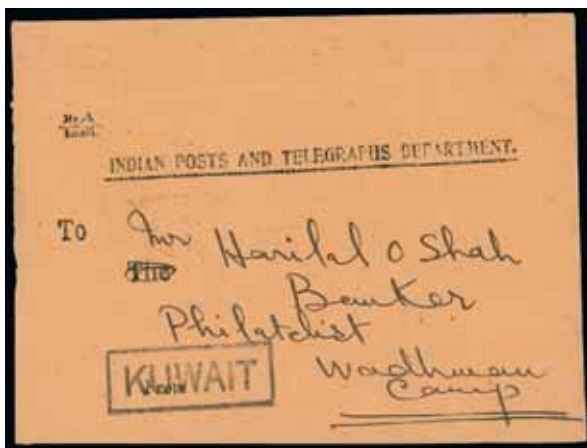 INDIAN POSTS AND TELEGRAPHS DEPARTMENT.
To Mr Harilal O Shah
The
Banker
Philatelist
KUWAIT
Wadhwan
Camp